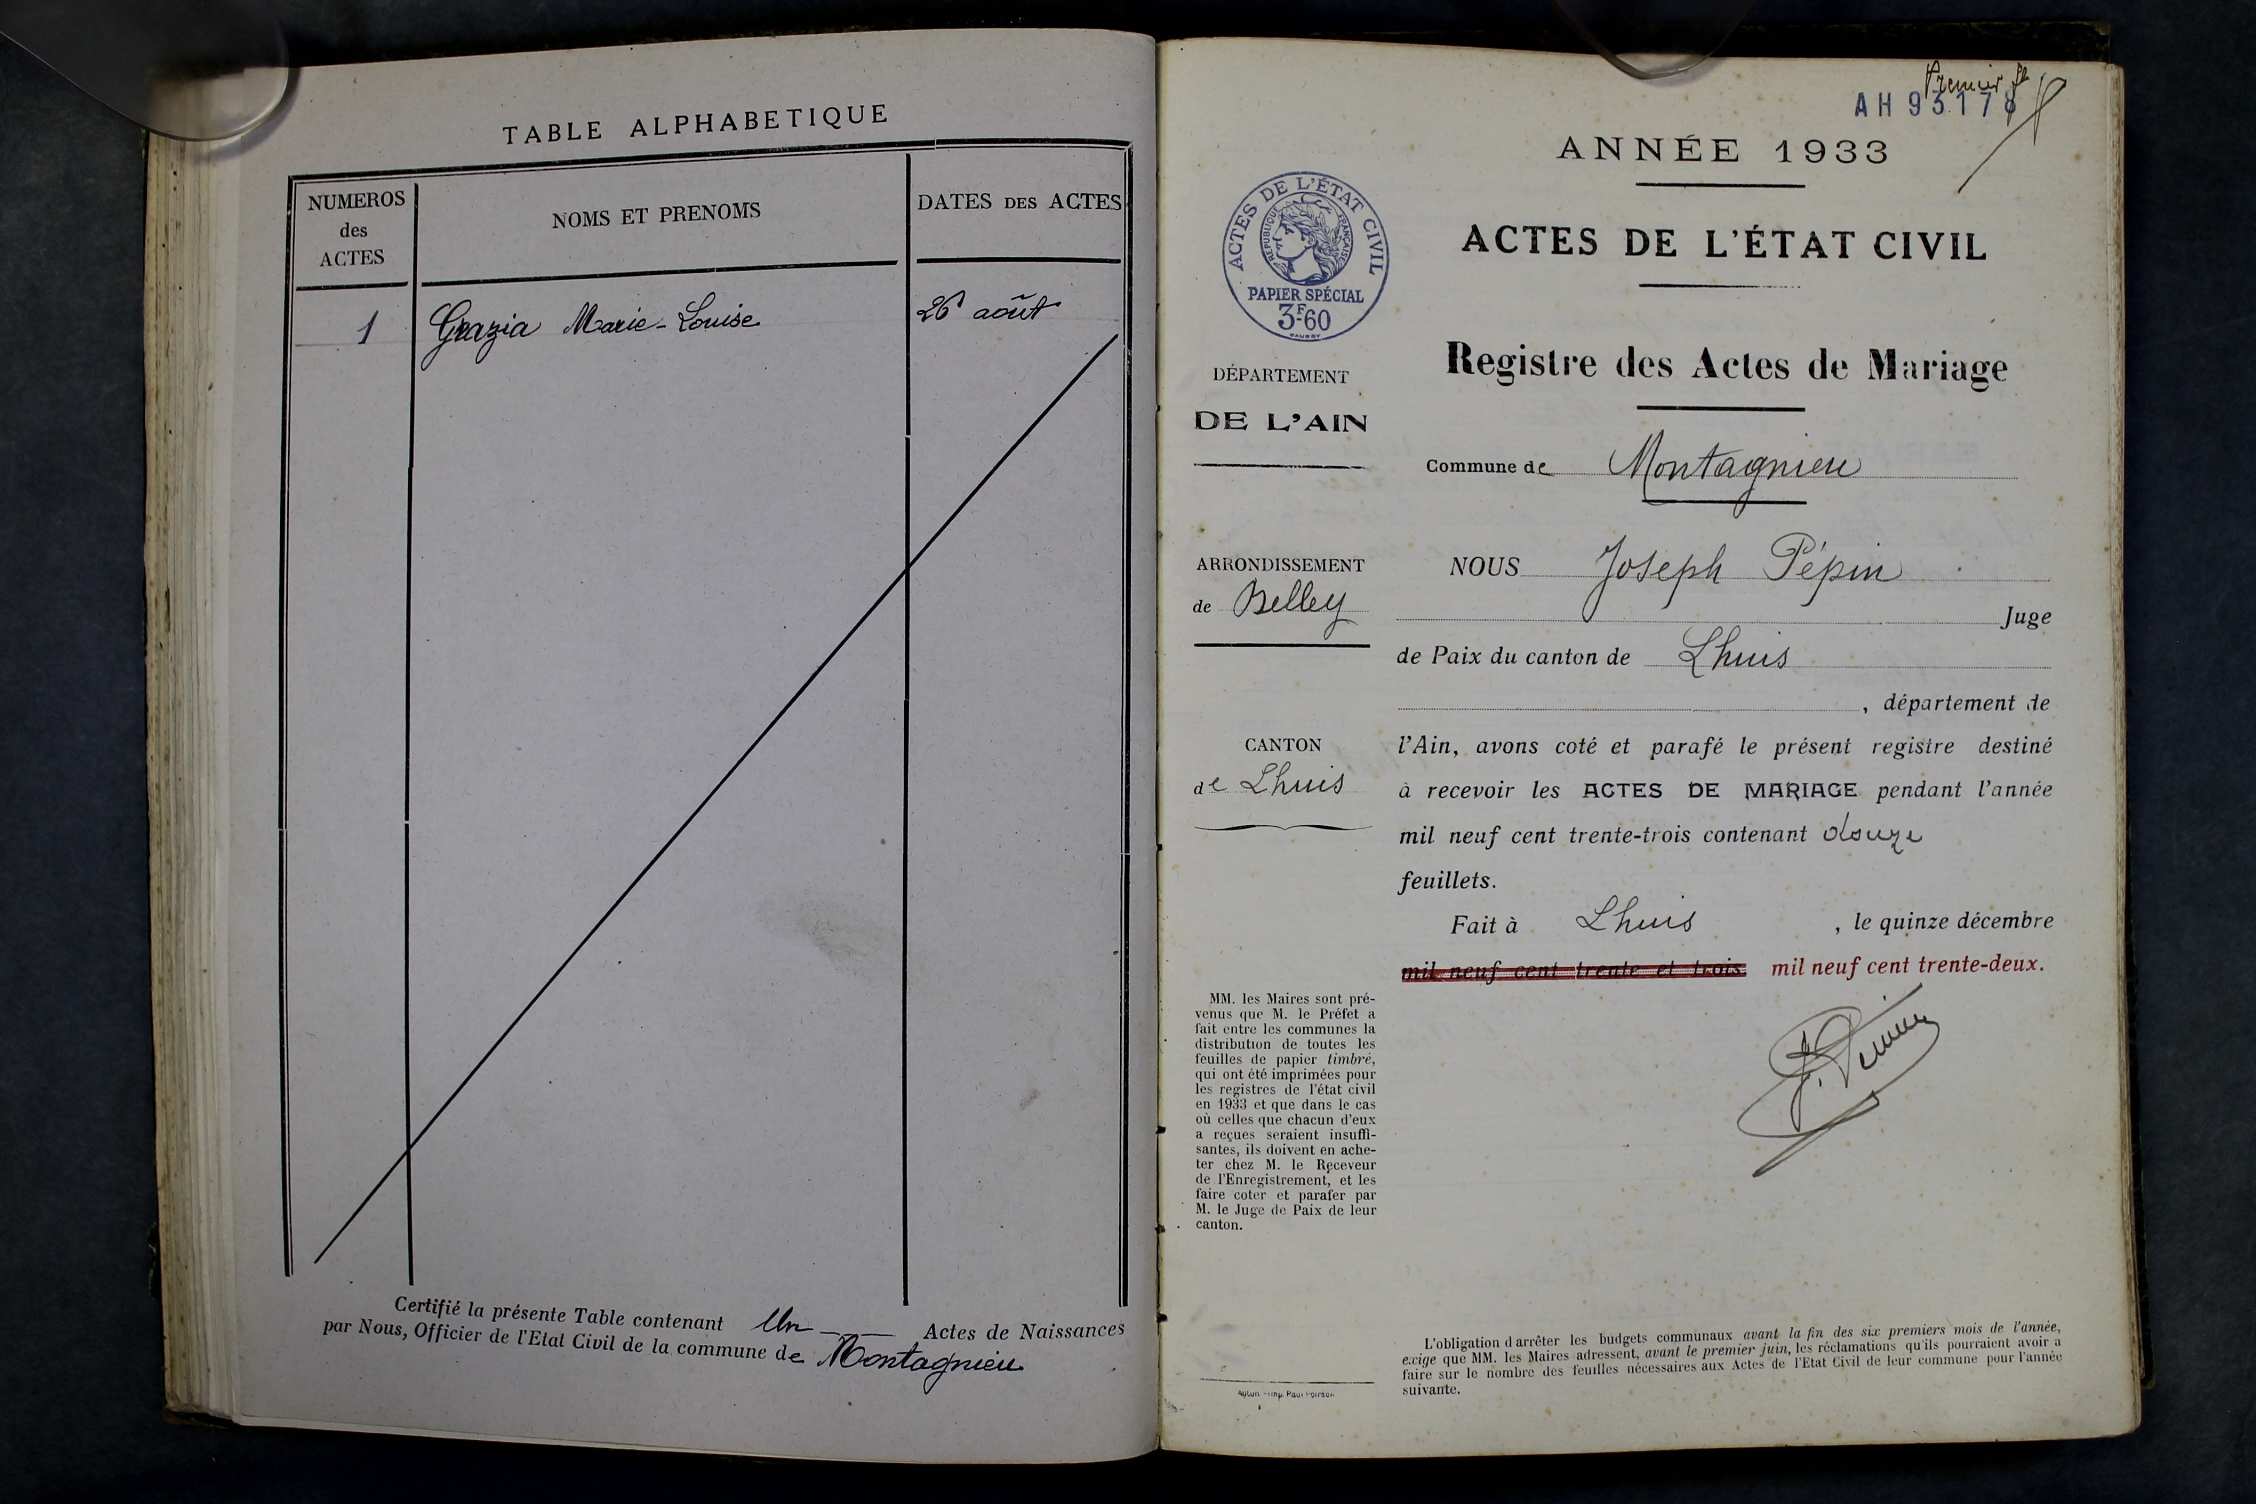 TABLE ALPHABETIQUE
NUMEROS
des
ACTES
NOMS ET PRENOMS
DATES DES ACTES
1 Grazia Marie-Louise 26 août
Certifié la présente Table contenant Un Actes de Naissances
par Nous, Officier de l'Etat Civil de la commune de Montagnieu
Premier
AH 93178
ANNÉE 1933
ACTES DE L'ÉTAT CIVIL
RÉPUBLIQUE FRANÇAISE
PAPIER SPÉCIAL
3F60
ACTES DE L'ÉTAT CIVIL
Registre des Actes de Mariage
DÉPARTEMENT
DE L'AIN
Commune de Montagnieu
ARRONDISSEMENT
de Belley
NOUS Joseph Pépin
Juge
de Paix du canton de Lhuis
, département de
CANTON
de Lhuis
l'Ain, avons coté et parafé le présent registre destiné
à recevoir les ACTES DE MARIAGE pendant l'année
mil neuf cent trente-trois contenant douze
feuillets.
Fait à Lhuis, le quinze décembre
mil neuf cent trente et trois mil neuf cent trente-deux.
J. Pépin
MM. les Maires sont pré-
venus que M. le Préfet a
fait entre les communes la
distribution de toutes les
feuilles de papier timbré,
qui ont été imprimées pour
les registres de l'état civil
en 1933 et que dans le cas
où celles que chacun d'eux
a reçues seraient insuffi-
santes, ils doivent en ache-
ter chez M. le Receveur
de l'Enregistrement, et les
faire coter et parafer par
M. le Juge de Paix de leur
canton.
L'obligation d'arrêter les budgets communaux avant la fin des six premiers mois de l'année,
exige que MM. les Maires adressent, avant le premier juin, les réclamations qu'ils pourraient avoir à
faire sur le nombre des feuilles nécessaires aux Actes de l'Etat Civil de leur commune pour l'année
suivante.
Imp. Paul